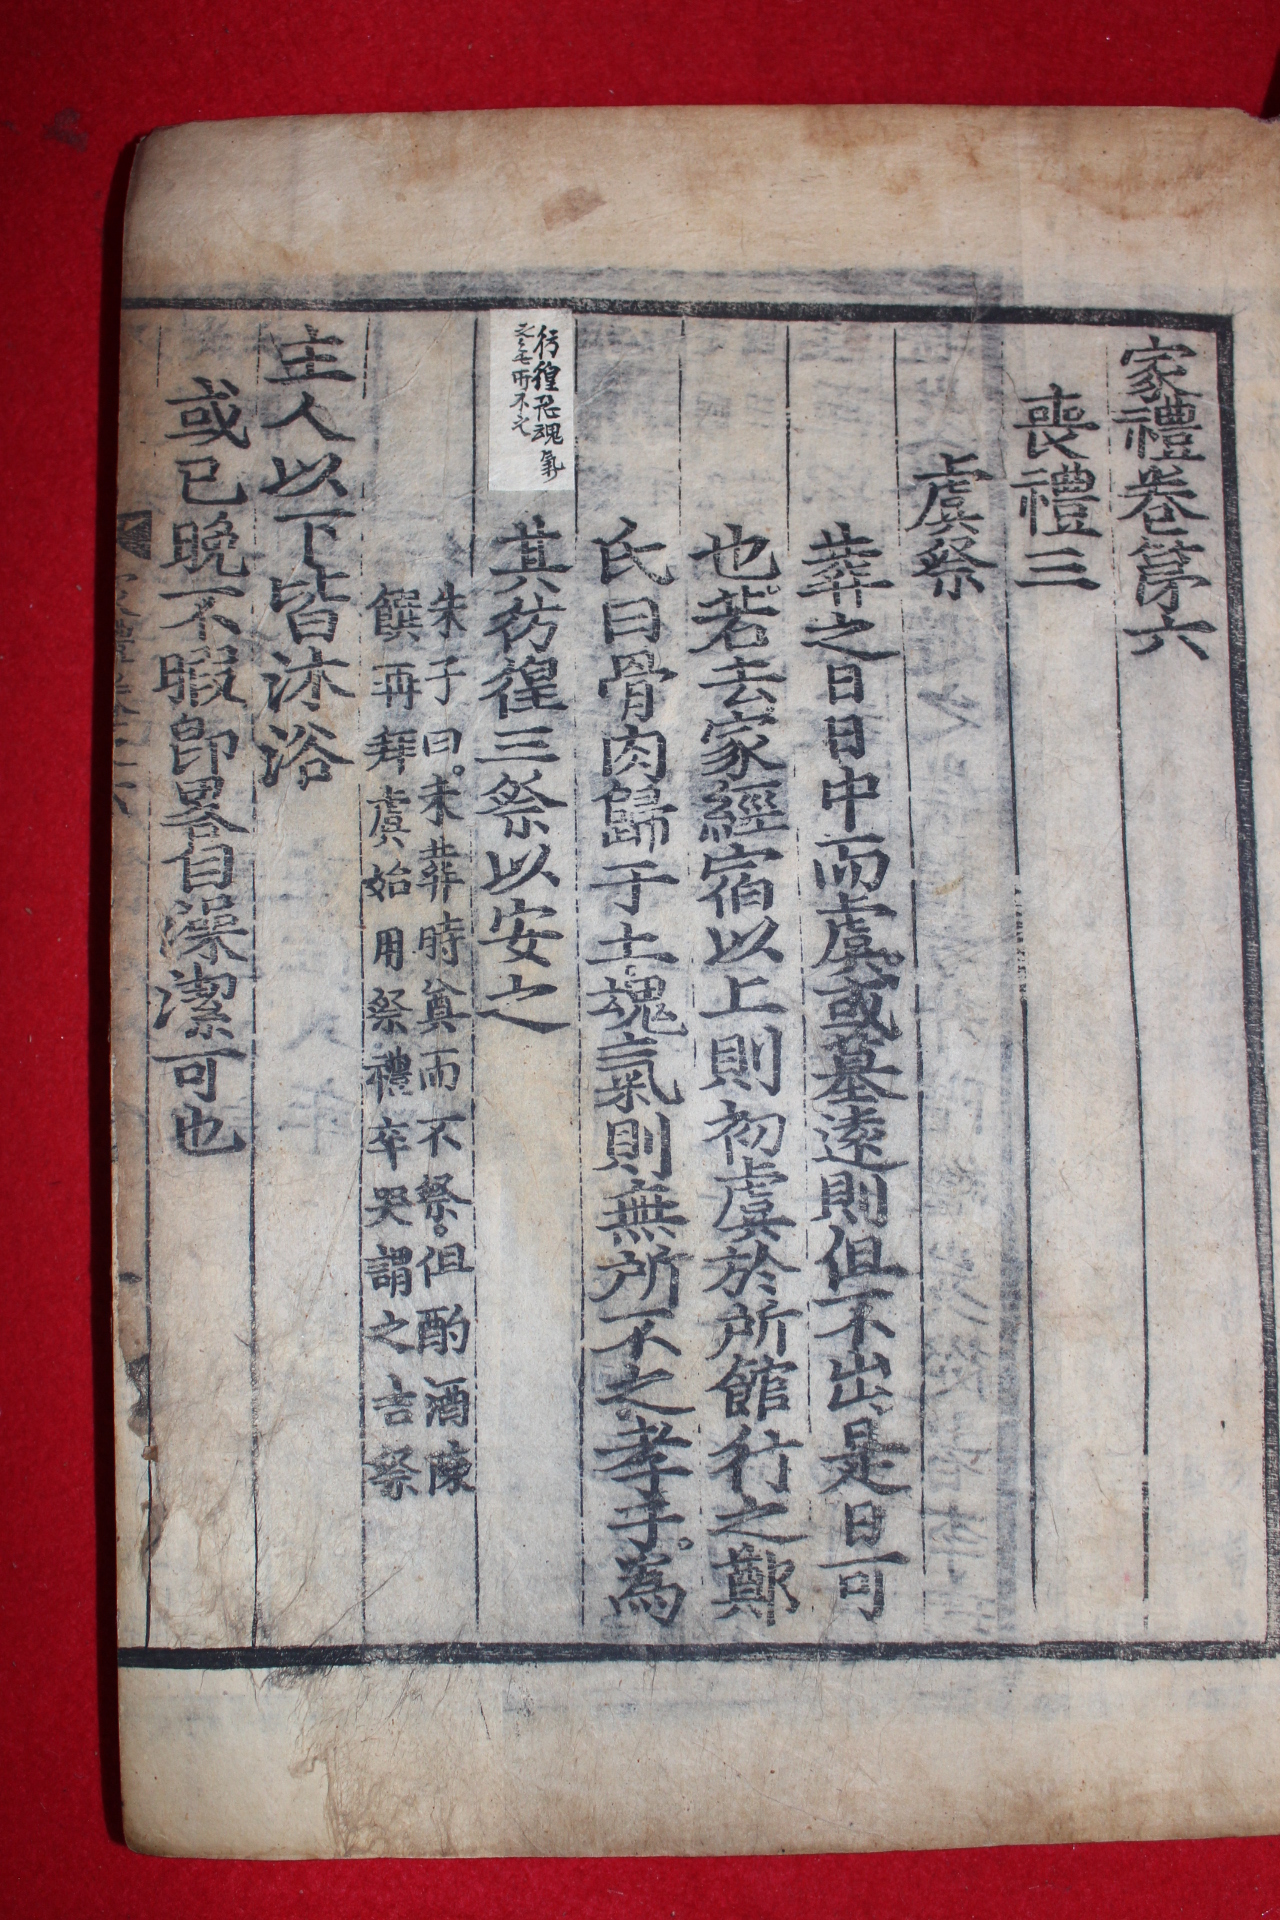 家禮卷第六
喪禮三
虞祭
葬之日日中而虞或墓遠則但不出是日可
也若去家經宿以上則初虞於所館行之鄭
氏曰骨肉歸于土魂氣則無所不之孝子爲
其彷徨三祭以安之
彷徨恐魂氣
所不之
朱子曰未葬時奠而不祭但酌酒陳
饌再拜虞始用祭禮卒哭謂之吉祭
主人以下皆沐浴
或已晩不暇卽畧自澡潔可也